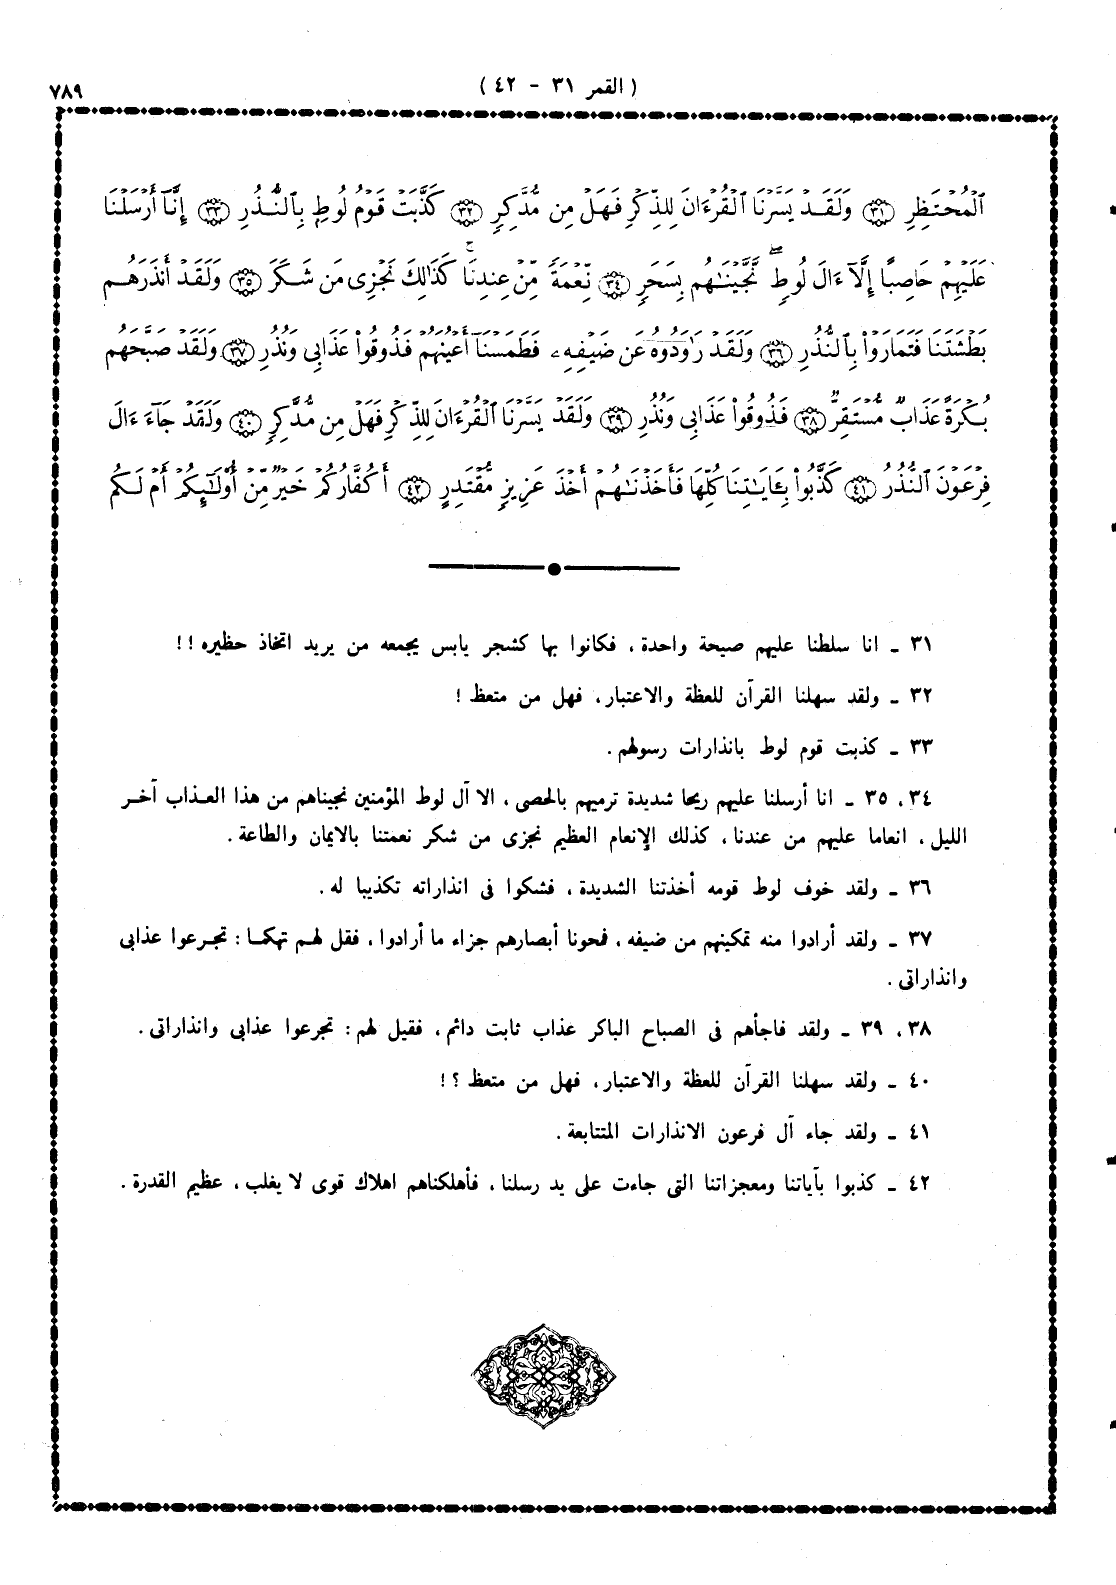 ( القمر ٣١ - ٤٢ )
٧٨٩
ٱلْمُحْتَظِرِ ٣١ وَلَقَدْ يَسَّرْنَا ٱلْقُرْءَانَ لِلذِّكْرِ فَهَلْ مِن مُّدَّكِرٍ ٣٢ كَذَّبَتْ قَوْمُ لُوطٍ بِٱلنُّذُرِ ٣٣ إِنَّآ أَرْسَلْنَا
عَلَيْهِمْ حَاصِبًا إِلَّآ ءَالَ لُوطٍ ۖ نَّجَّيْنَـٰهُم بِسَحَرٍ ٣٤ نِّعْمَةً مِّنْ عِندِنَا ۚ كَذَٰلِكَ نَجْزِى مَن شَكَرَ ٣٥ وَلَقَدْ أَنذَرَهُم
بَطْشَتَنَا فَتَمَارَوْا۟ بِٱلنُّذُرِ ٣٦ وَلَقَدْ رَٰوَدُوهُ عَن ضَيْفِهِۦ فَطَمَسْنَآ أَعْيُنَهُمْ فَذُوقُوا۟ عَذَابِى وَنُذُرِ ٣٧ وَلَقَدْ صَبَّحَهُم
بُكْرَةً عَذَابٌ مُّسْتَقِرٌّ ٣٨ فَذُوقُوا۟ عَذَابِى وَنُذُرِ ٣٩ وَلَقَدْ يَسَّرْنَا ٱلْقُرْءَانَ لِلذِّكْرِ فَهَلْ مِن مُّدَّكِرٍ ٤٠ وَلَقَدْ جَآءَ ءَالَ
فِرْعَوْنَ ٱلنُّذُرُ ٤١ كَذَّبُوا۟ بِـَٔايَـٰتِنَا كُلِّهَا فَأَخَذْنَـٰهُمْ أَخْذَ عَزِيزٍ مُّقْتَدِرٍ ٤٢ أَكُفَّارُكُمْ خَيْرٌ مِّنْ أُو۟لَـٰٓئِكُمْ أَمْ لَكُم
٣١ - انا سلطنا عليهم صيحة واحدة ، فكانوا بها كشجر يابس يجمعه من يريد اتخاذ حظيره ! !
٣٢ - ولقد سهلنا القرآن للعظة والاعتبار ، فهل من متعظ !
٣٣ - كذبت قوم لوط بانذارات رسولهم .
٣٤ ، ٣٥ - انا أرسلنا عليهم ريحا شديدة ترميهم بالحصى ، الا آل لوط المؤمنين نجيناهم من هذا العذاب آخر
الليل ، انعاما عليهم من عندنا ، كذلك الإنعام العظيم نجزى من شكر نعمتنا بالايمان والطاعة .
٣٦ - ولقد خوف لوط قومه أخذتنا الشديدة ، فشكوا فى انذاراته تكذيبا له .
٣٧ - ولقد أرادوا منه تمكينهم من ضيفه ، فمحونا أبصارهم جزاء ما أرادوا ، فقل لهم تهكما : تجرعوا عذابى
وانذاراتى .
٣٨ ، ٣٩ - ولقد فاجأهم فى الصباح الباكر عذاب ثابت دائم ، فقيل لهم : تجرعوا عذابى وانذاراتى .
٤٠ - ولقد سهلنا القرآن للعظة والاعتبار ، فهل من متعظ ؟ !
٤١ - ولقد جاء آل فرعون الانذارات المتتابعة .
٤٢ - كذبوا بآياتنا ومعجزاتنا التى جاءت على يد رسلنا ، فأهلكناهم اهلاك قوى لا يغلب ، عظيم القدرة .